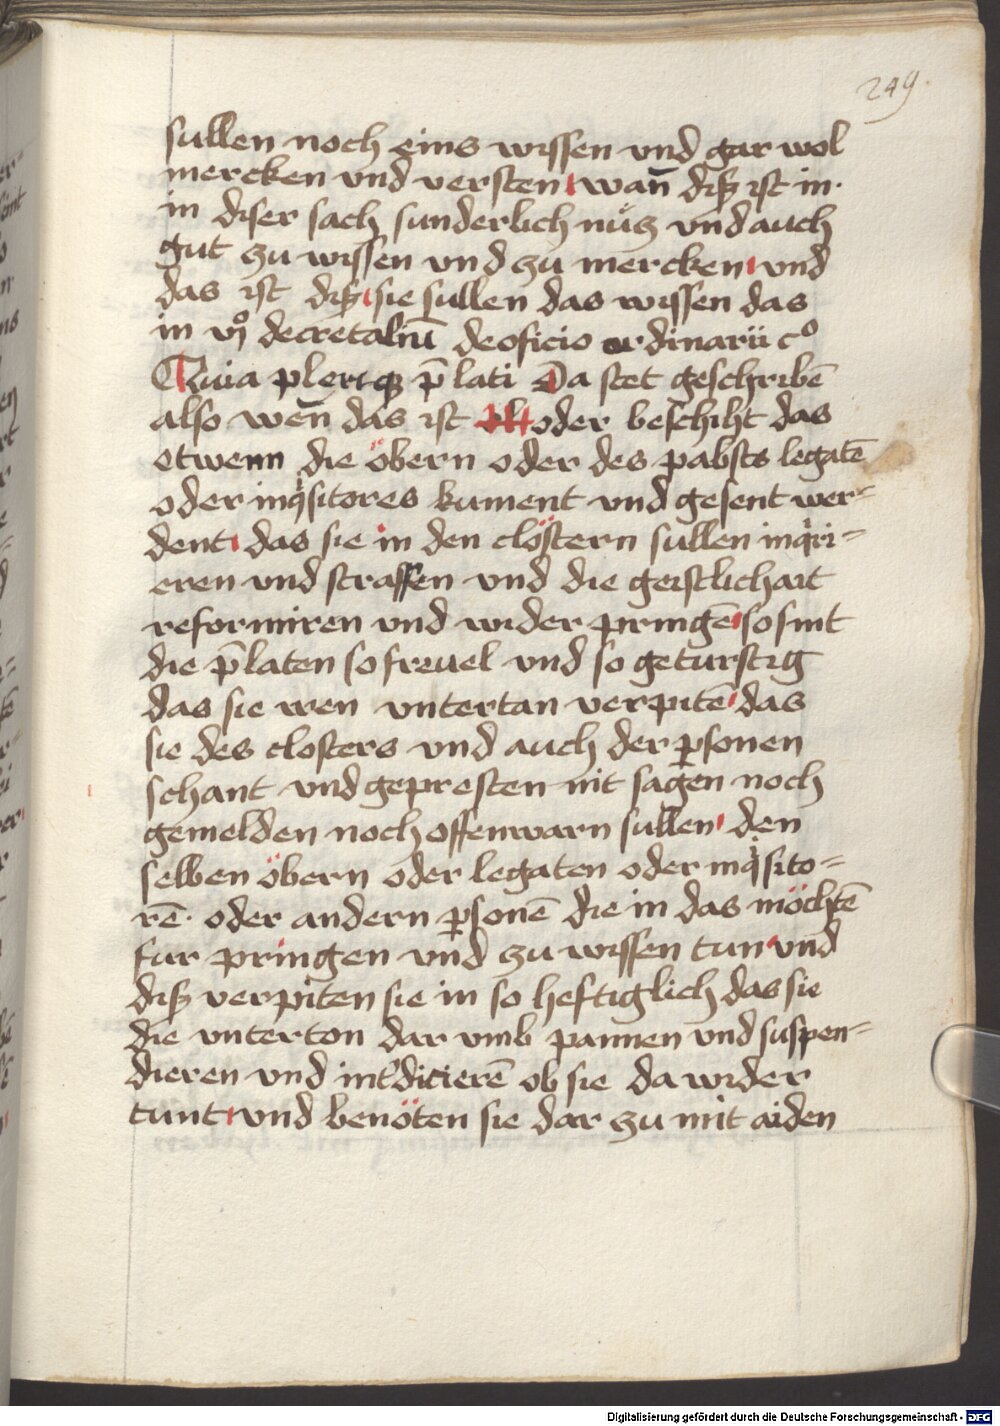 249.
sullen noch eins wissen vnd gar wol
mercken vnd versten wan̄ diß ist in.
in diser sach sunderlich nücz vnd auch
gut zu wissen vnd zu mercken vnd
das ist diß sie sullen das wissen das
in vjͦ decretaliū de oficio ordinarii cͦ
Quia pleriqꝫ p̄lati Da stet geschribē
also wen̄ das ist oder beschiht das
etwenn die öbern oder des pabsts legatē
oder inqͥsitores kument vnd gesent wer=
dent das sie in den clöstern sullen inqͥri=
eren vnd straffen vnd die geistlichait
reformiren vnd wider pringē so sint
die p̄laten so freuel vnd so geturstig
das sie iren vntertan verpitē das
sie des closters vnd auch der ꝑsonen
schant vnd gepresten nit sagen noch
gemelden noch offenwarn sullen den
selben öbern oder legaten oder inqͥsito=
rē. oder andern ꝑsonē die in das möchtē
fur pringen vnd zu wissen tun vnd
diß verpiten sie in so heftiglich das sie
die vnterton dar vmb pannen vnd suspen=
dieren vnd int'dicierē ob sie da wider
tunt vnd benöten sie dar zu mit aiden
Digitalisierung gefördert durch die Deutsche Forschungsgemeinschaft - DFG